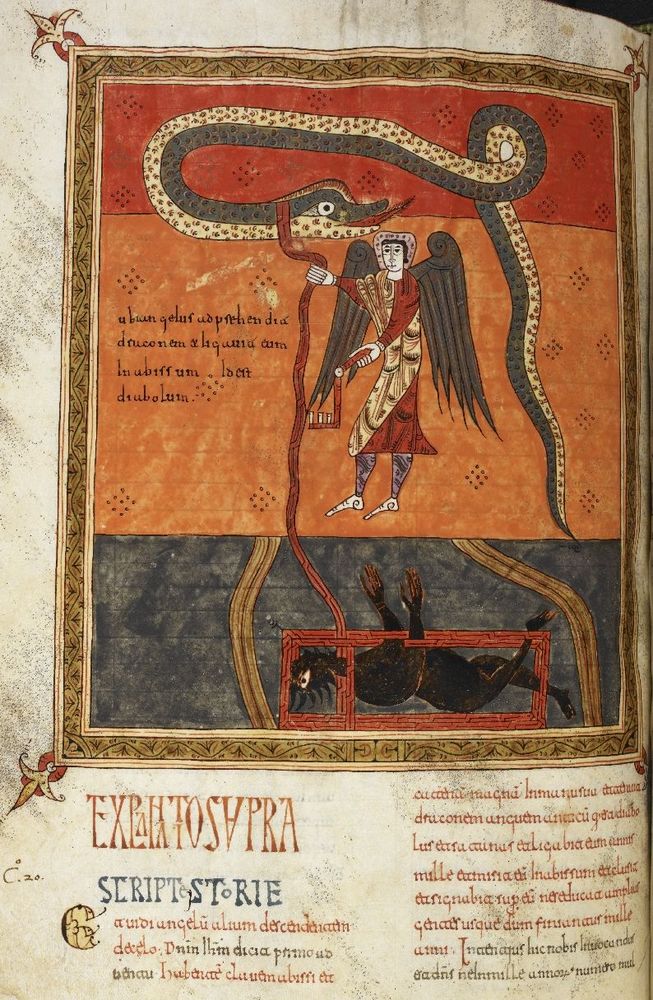 ubi angelus adprehendia
draconem & liguauia eum
In abissum. Id est
diabolum.
EXPLANATIO SUPRA
C. 20.
SCRIPTE STORIE
Et uidi angelu alium descendentem
de celo. Dnm Ihm dicit primo ad
uentu habente clauem abissi et
catena magna In manu sua et tenuit
draconem anguem anticu qui est diabo
lus et satanas et ligabit eum annis
mille et misit eu In abissum et clusit
et signabit sup eu ne seducat amplius
gentes usque dum finiantur mille
anni. hic nobis
mille annor numero